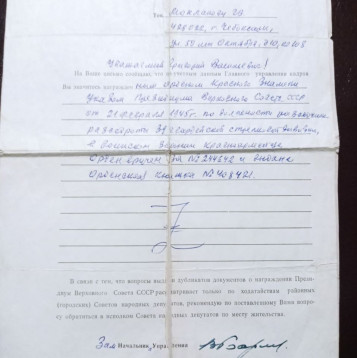 Тов.
ЧАССР, г. Чебоксары,
ул. 50 лет Октября,
Уважаемый Григорий
На Ваше письмо сообщаем, что по учетным данным Главного управления кадров
Вы значитесь награжденным орденом Красного Знамени
Указом Президиума Верховного Совета СССР
от 21 февраля 1945г. по должности разведчика
гвардейской стрелковой дивизии,
в воинском звании красноармеец
Орден вручен за № 244642 и выдана
Орденская книжка № 408421.
В связи с тем, что вопросы выдачи дубликатов документов о награждении Прези-
диум Верховного Совета СССР рассматривает только по ходатайствам районных
(городских) Советов народных депутатов, рекомендую по поставленному Вами вопро-
су обратиться в исполком Совета народных депутатов по месту жительства.
Зам Начальник Управления